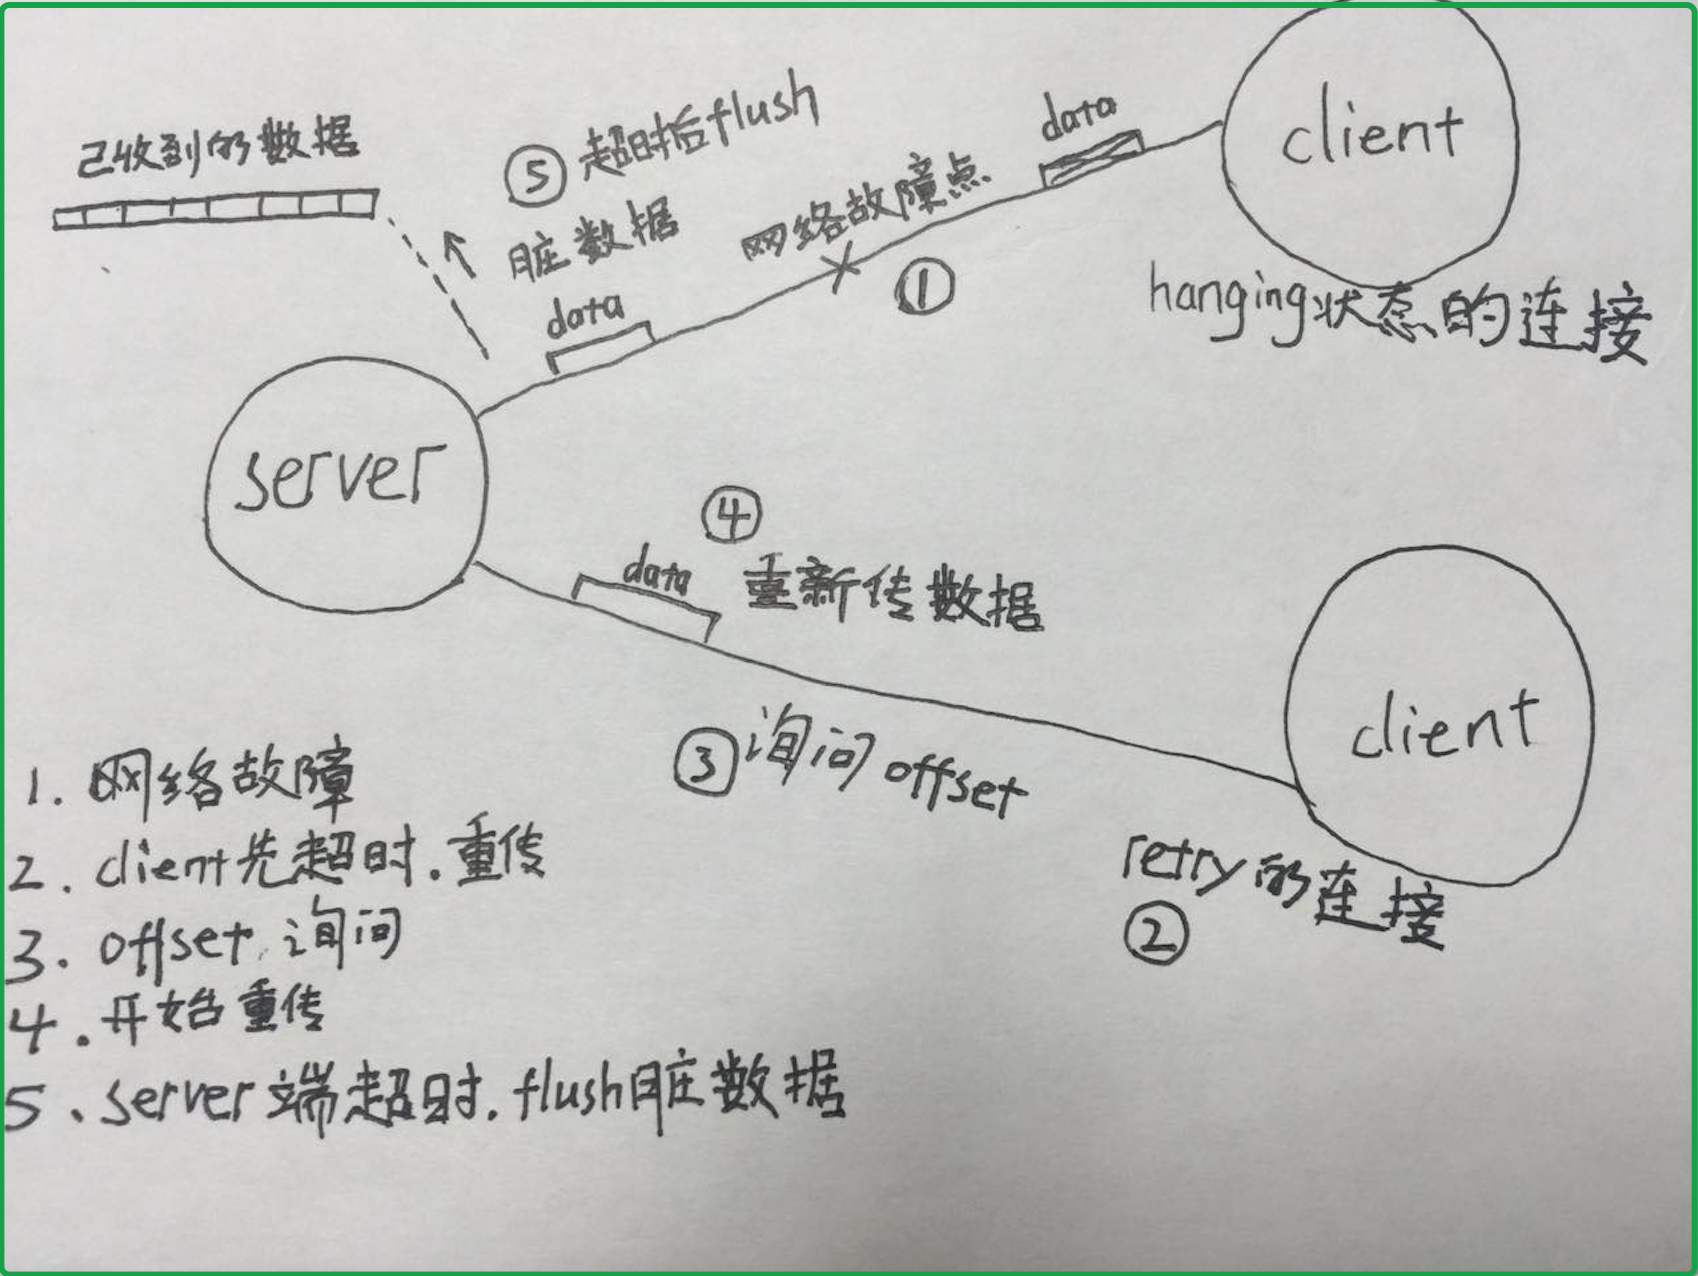 已收到的数据
⑤ 超时后flush
脏数据
data
网络故障点
①
data
client
hanging状态的连接
server
④
data
重新传数据
③询问offset
client
retry的连接
②
1. 网络故障
2. client先超时.重传
3. offset 询问
4. 开始重传
5、server端超时.flush脏数据